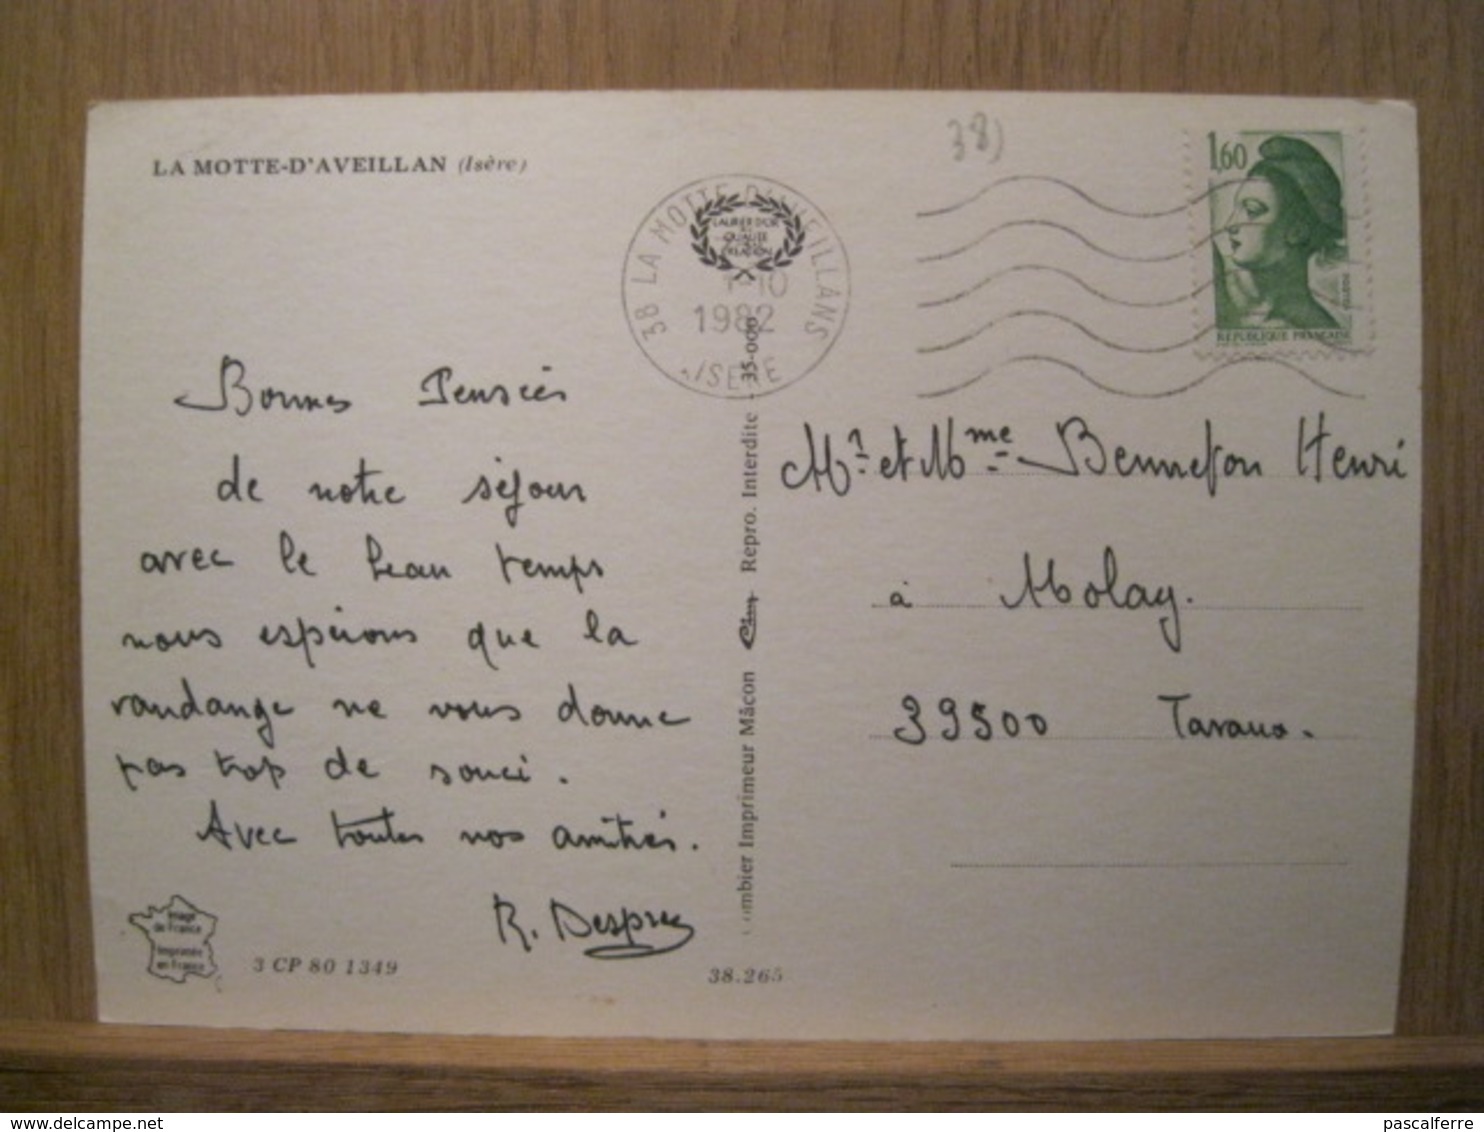 LA MOTTE-D'AVEILLAN (Isère)
38)
38 LA MOTTE D'AVEILLANS
1-10
1982
ISERE
LAURIER D'OR
QUALITE
1,60
REPUBLIQUE FRANÇAISE
Bonnes Pensées
de notre séjour
avec le beau temps
nous espérons que la
vandange ne vous donne
pas trop de souci.
Avec toutes nos amitiés.
R. Desprez
Mr et Mme Bennefon Henri
à Molay.
39500 Tavaux.
Combier Imprimeur Mâcon Cim Repro. Interdite - 35-000
Image
de France
Imprimée
en France
3 CP 80 1349
38.265
pascalferre